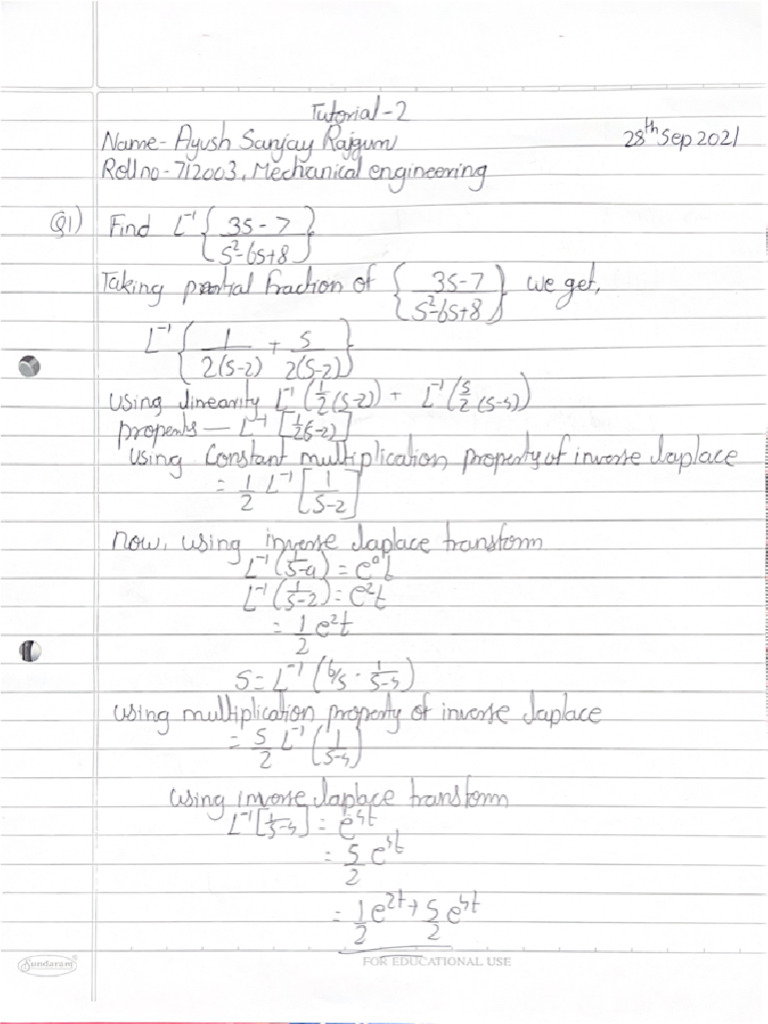 Tutorial-2
Name- Ayush Sanjay Rajgum 28th Sep 2021
Roll no - 712003, Mechanical engineering
Q1) Find L⁻¹{ 3s-7 / s²-6s+8 }
Taking partial fraction of { 3s-7 / s²-6s+8 } we get,
L⁻¹{ 1 / 2(s-2) + 5 / 2(s-2) }
using linearity L⁻¹(1/2 (s-2)) + L⁻¹(5/2 (s-4))
property — L⁻¹ [1/2(s-2)]
using Constant multiplication property of inverse laplace
= 1/2 L⁻¹ [ 1 / s-2 ]
now, using inverse laplace transform
L⁻¹ (1/s-a) = eᵃt
L⁻¹ (1/s-2) = e²t
= 1/2 e²t
using multiplication property of inverse laplace
= 5/2 L⁻¹ ( 1 / s-4 )
using inverse laplace transform
L⁻¹ [1/s-4] = e⁴ᵗ
= 5/2 e⁴ᵗ
= 1/2 e²ᵗ + 5/2 e⁴ᵗ
Sundaram FOR EDUCATIONAL USE